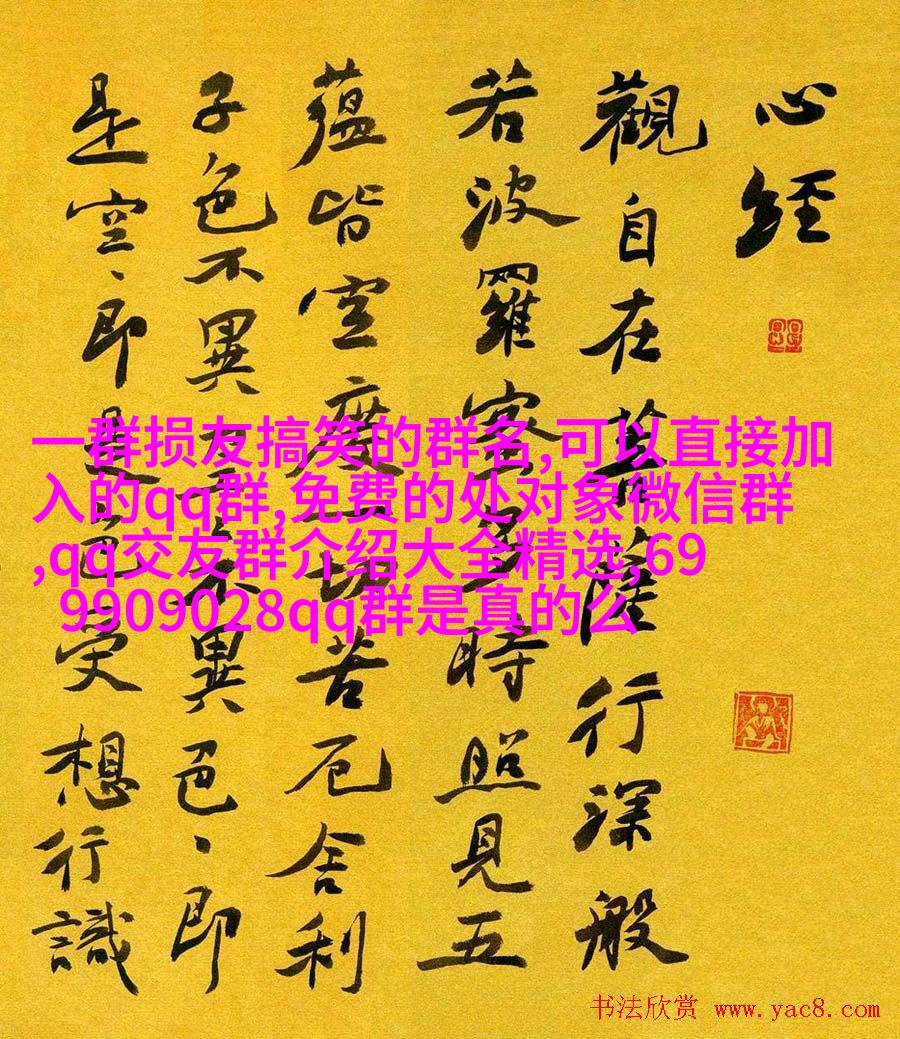 心經
觀自在菩薩行深般
若波羅蜜多時照見五
蘊皆空度一切苦厄舍利
子色不異空、不異色、即
是空、即是色受想行識
一群损友搞笑的群名,可以直接加
入的qq群,免费的处对象微信群
,qq交友群介绍大全精选,69
9909028qq群是真的么
书法欣赏 www.yac8.com